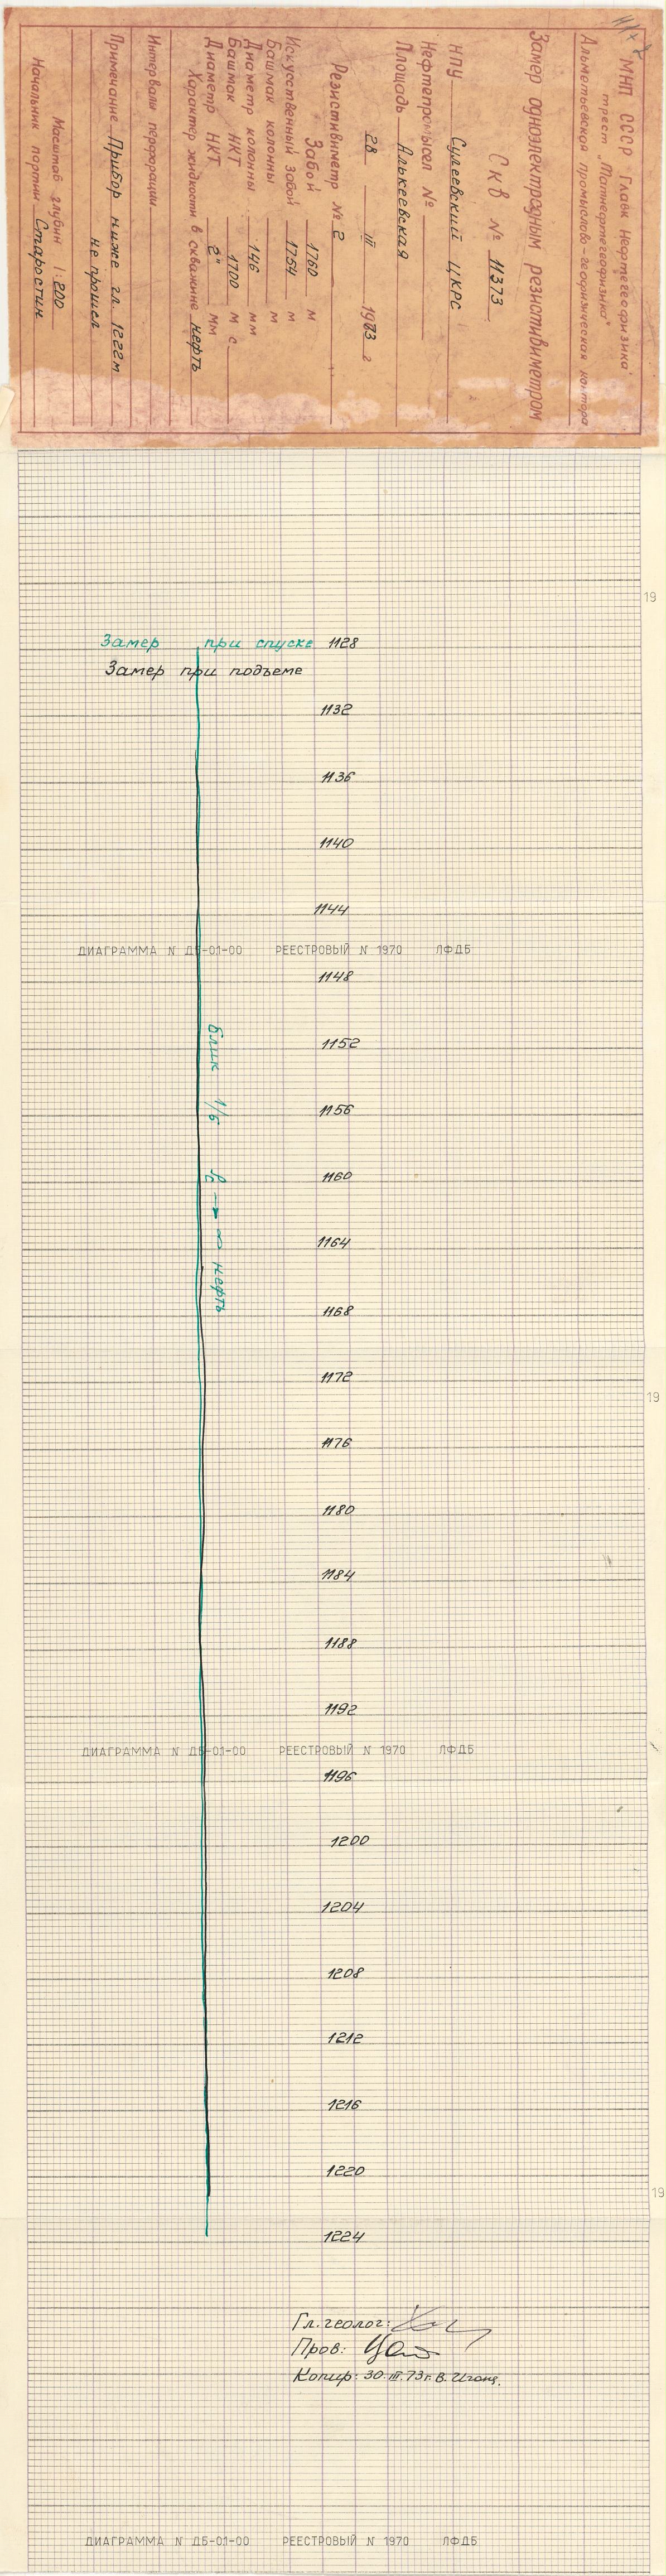 МНП СССР Главк Нефтегеофизика
трест „Татнефтегеофизика"
Альметьевская промыслово-геофизическая контора
Замер одноэлектродным резистивиметром
Скв № 11373
НПУ Сулеевский ЦКРС
Нефтепромысел №
Площадь Алькеевская
28 III 1973 г
Резистивиметр № 2
Забой 1760 м
Искусственный забой 1754 м
Башмак колонны м
Диаметр колонны 146 мм
Башмак НКТ 1700 м с
Диаметр НКТ 2" мм
Характер жидкости в скважине нефть
Интервалы перфорации
Примечание Прибор ниже гл. 1222 м
не прошел
Масштаб глубин 1:200
Начальник партии Старостин
19
Замер при спуске 1128
Замер при подъеме
1132
1136
1140
1144
ДИАГРАММА N ДБ-01-00 РЕЕСТРОВЫЙ N 1970 ЛФДБ
1148
1152
1156
1160
1164
1168
Блик 1/6 → ∞ нефть
1172
19
1176
1180
1184
1188
1192
ДИАГРАММА N ДБ-01-00 РЕЕСТРОВЫЙ N 1970 ЛФДБ
1196
1200
1204
1208
1212
1216
1220
19
1224
Гл. геолог:
Пров:
Копир: 30.III.73г. В.
ДИАГРАММА N ДБ-01-00 РЕЕСТРОВЫЙ N 1970 ЛФДБ